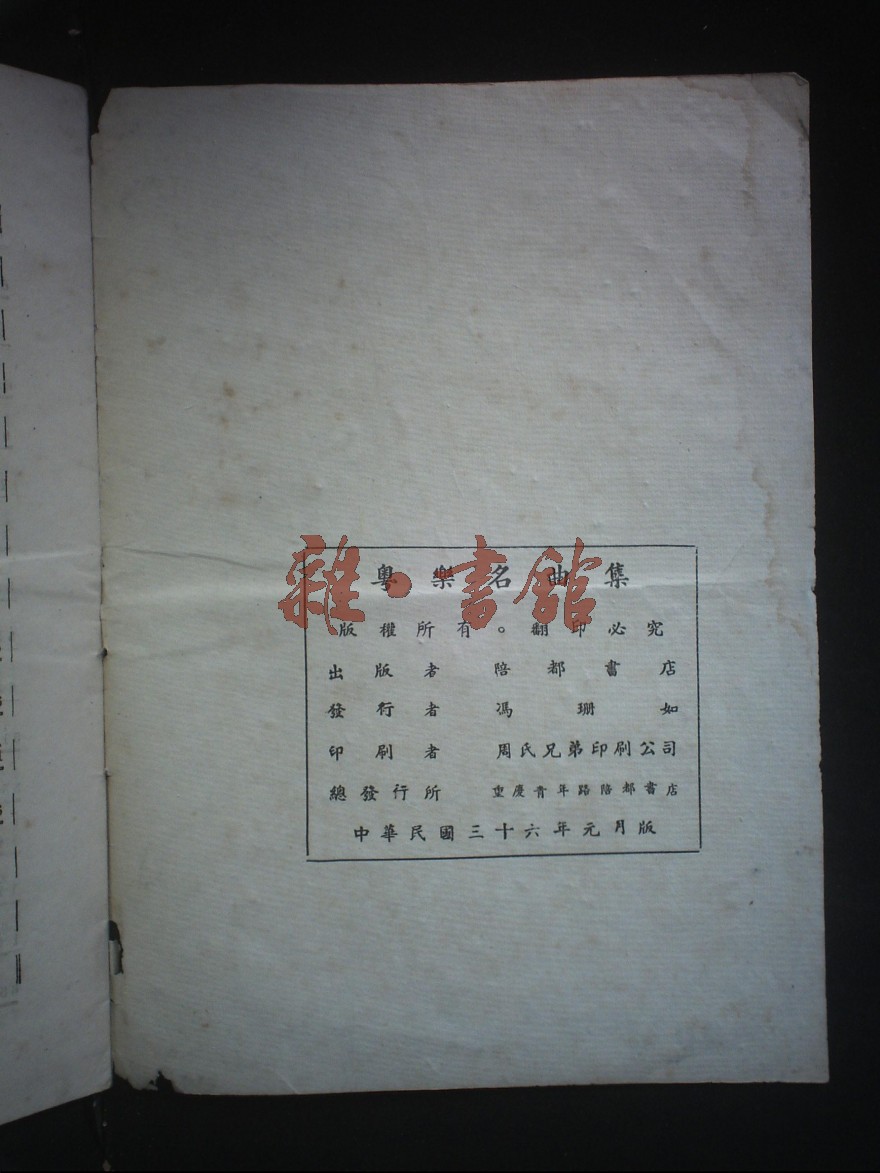 粤樂名曲集
雜·書館
版權所有。翻印必究
出版者 陪都書店
發行者 馮珊如
印刷者 周氏兄弟印刷公司
總發行所 重慶青年路陪都書店
中華民國三十六年元月版